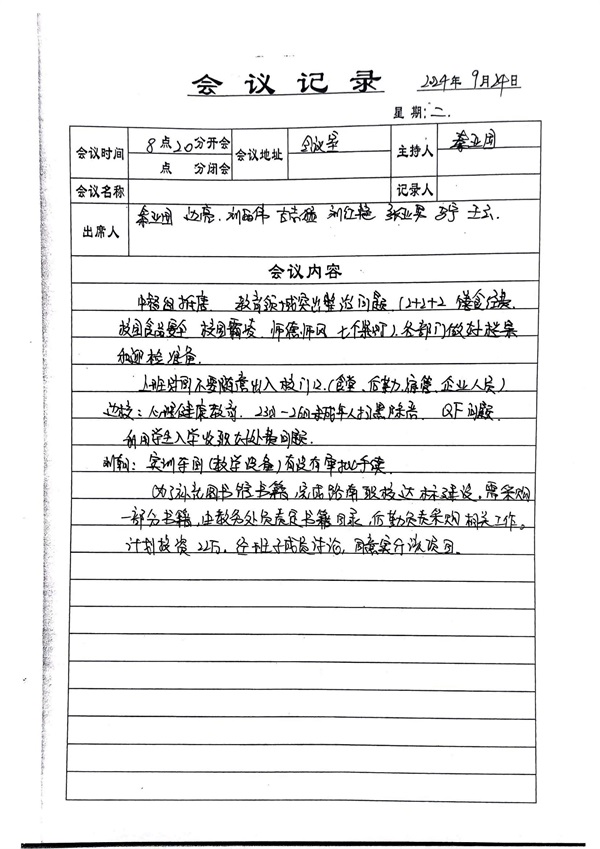 会议记录 2024年9月24日
星期:二.
会议时间 8点20分开会 会议地址 会议室 主持人 秦亚国
点 分闭会
会议名称 记录人
出席人 秦亚国 边亮. 刘 伟 刘红艳 王云.
会议内容
教育领域突出整治问题 (2+2+2 膳食经费.
校园食品安全 校园霸凌 师德师风 七个案例). 各部门做好档案
和迎检准备.
上班时间不要随意出入校门口.(食堂、后勤、宿管、企业人员)
边校: 心理健康教育. 23日-26日 扫黑除恶. QF问题
利用学生入学收取 问题.
刘 : 实训车间(教学设备)有没有审批手续
为了补充图书馆书籍, 完成 达标建设, 需采购
一部分书籍, 由教务处负责 书籍目录, 后勤负责采购相关工作。
计划投资22万, 经班子成员讨论, 同意实行该项目.